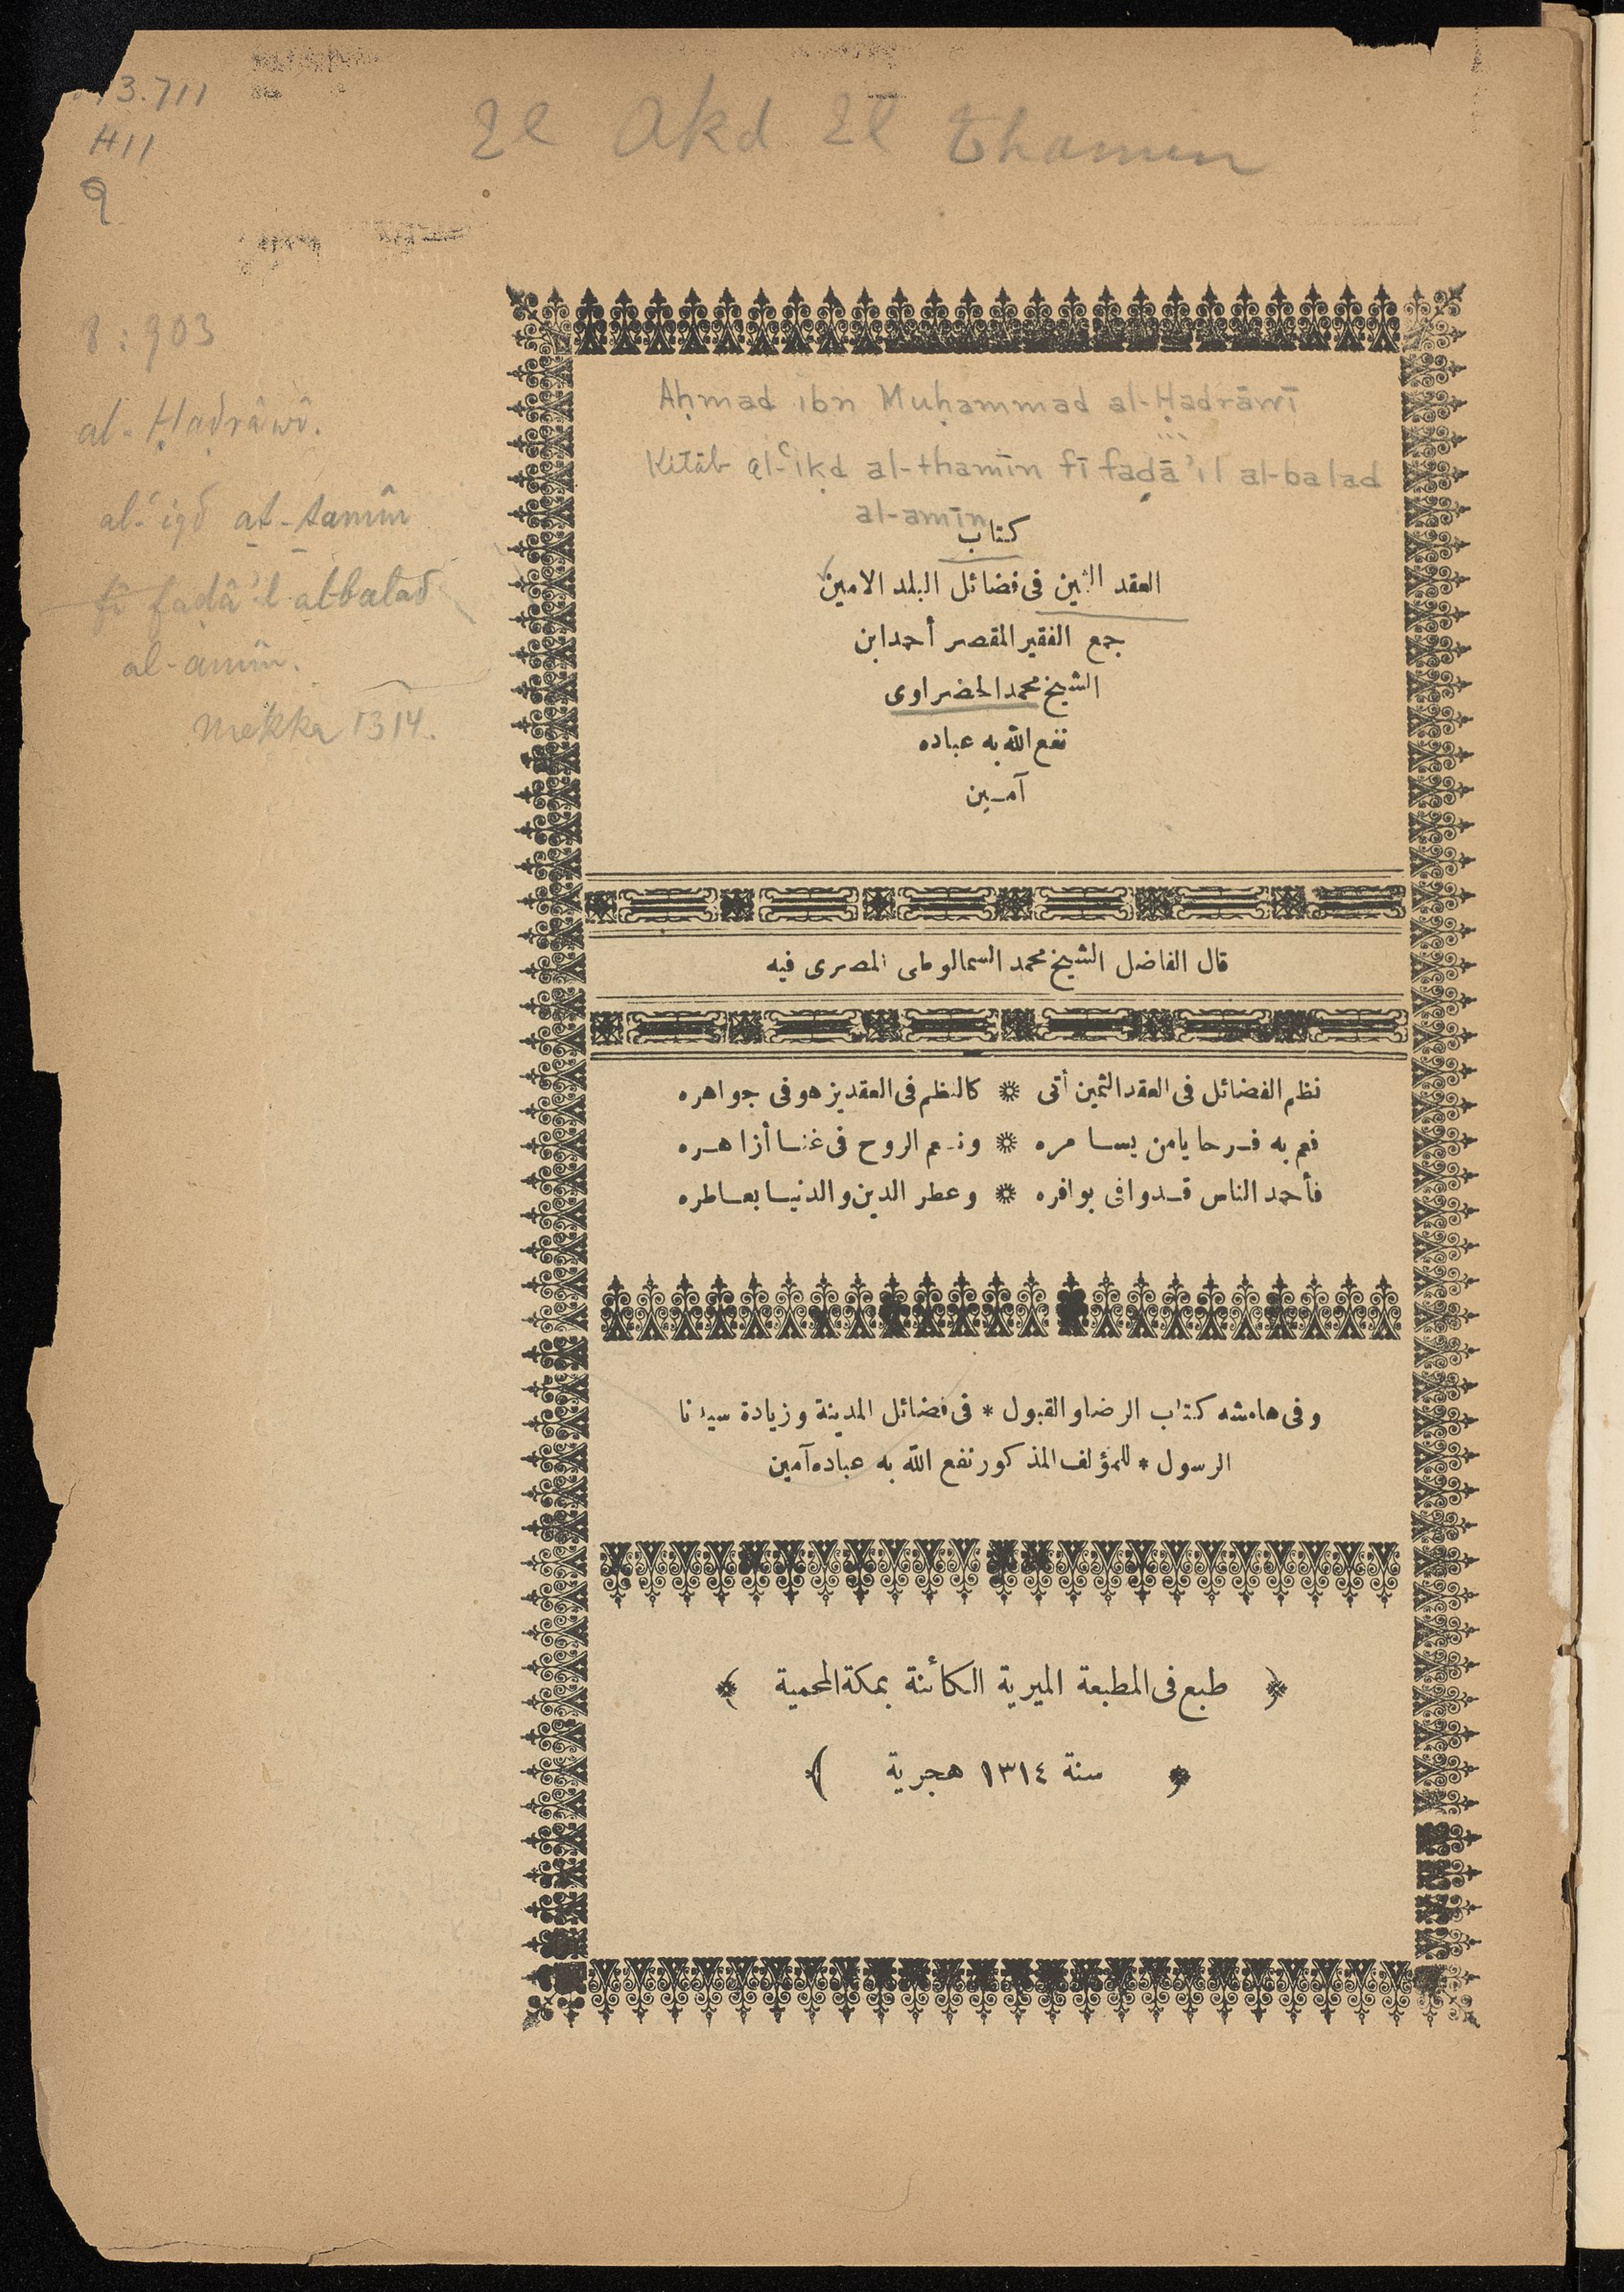 El Akd El Thamin
3.711
H11
Q
8:903
al-Ḥaḍrâwî.
al-ʿiqd aṯ-ṯamîn
fî faḍâʾil albalad
al-amîn.
Mekka 1314.
Aḥmad ibn Muḥammad al-Ḥaḍrāwī
Kitāb al-ʿiḳd al-thamīn fī faḍāʾil al-balad
al-amīn
كتاب
العقد الثمين فى فضائل البلد الامين
جمع الفقير المقصر أحمد ابن
الشيخ محمد الحضراوى
نفع الله به عباده
آمين
قال الفاضل الشيخ محمد السمالوطى المصرى فيه
نظم الفضائل فى العقد الثمين أتى * كالنظم فى العقد يزهو فى جواهره
فعم به فرحا يا من يسامره * ونعم الروح فى غنا أزاهره
فأحمد الناس قد وافى بوافره * وعطر الدين والدنيا بعاطره
وفى هامشه كتاب الرضا والقبول * فى فضائل المدينة وزيادة سيدنا
الرسول * للمؤلف المذكور نفع الله به عباده آمين
﴿ طبع فى المطبعة الميرية الكائنة بمكة المحمية ﴾
﴿ سنة ١٣١٤ هجرية ﴾